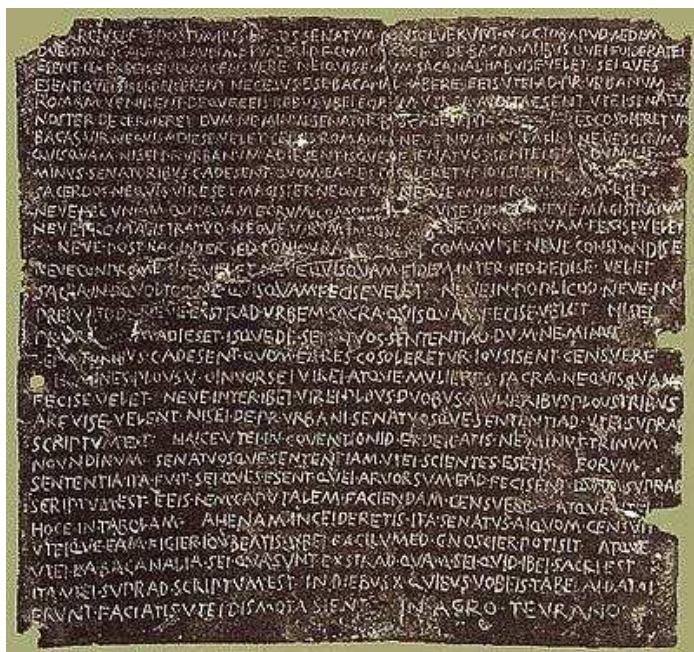 POSTVMIVS COS SENATVM CONSOLVERVNT N OCTOB APVD AEDEM
DE BACANALIBVS QVEI FOIDERATEI
ESENT ITA EXDEICENDVM CENSVERE NEIQVIS EORVM SACANAL HABVISE VELET SEI QVES
ESENT QVEI SIBEI DEICERENT NECESVS ESE BACANAL HABERE EEIS VTEI AD PR VRBANVM
ROMAM VENIRENT DEQVE EEIS REBVS VBEI EORVM VTR A AVDITA ESENT VTEI SENATVS
NOSTER DECERNERET DVM NE MINVS SENATORBVS ADESENT RES COSOLERETVR
BACAS VIR NEQVIS ADIESE VELET CEIVIS ROMANVS NEVE NOMINVS LATINI NEVE SOCIVM
QVISQVAM NISEI PR VRBANVM ADIESENT ISQVE DE SENATVOS SENTENTIAD DVM NE
MINVS SENATORIBVS C ADESENT QVOM EA RES COSOLERETVR IOVSISENT
SACERDOS NEQVIS VIR ESET MAGISTER NEQVE VIR NEQVE MVLIER QVISQVAM ESET
NEVE PECVNIAM QVISQVAM EORVM COMOINEM VISE VELET NEVE MAGISTRATVM
NEVE PRO MAGISTRATVO NEQVE VIRVM NEQVE MVLIEREM QVISQVAM FECISE VELET
NEVE POST HAC INTER SED CONIOVRASE COMVOVISE NEVE CONSPONDISE
NEVE CONPROMESISE VELET NEVE QVISQVAM FIDEM INTER SED DEDISE VELET
SACRA IN OQVOLTOD NE QVISQVAM FECISE VELET NEVE IN POPLICOD NEVE IN
PREIVATOD NEVE EXSTRAD VRBEM SACRA QVISQVAM FECISE VELET NISEI
PR VRBANVM ADIESET ISQVE DE SENATVOS SENTENTIAD DVM NE MINVS
SENATORIBVS C ADESENT QVOM EA RES COSOLERETVR IOVSISENT CENSVERE
HOMINES PLOVS V OINVORSEI VIREI ATQVE MVLIERES SACRA NE QVISQVAM
FECISE VELET NEVE INTER IBEI VIREI PLOVS DVOBVS MVLIERIBVS PLOVS TRIBVS
ARFVISE VELENT NISEI DE PR VRBANI SENATVOSQVE SENTENTIAD VTEI SVPRAD
SCRIPTVM EST HAICE VTEI IN COVENTIONID EXDEICATIS NE MINVS TRINVM
NOVNDINVM SENATVOSQVE SENTENTIAM VTEI SCIENTES ESETIS EORVM
SENTENTIA ITA FVIT SEI QVES ESENT QVEI ARVORSVM EAD FECISENT QVAM SVPRAD
SCRIPTVM EST EEIS REM CAPVTALEM FACIENDAM CENSVERE ATQVE
HOCE IN TABOLAM AHENAM INCEIDERETIS ITA SENATVS AIQVOM CENSVIT
VTEIQVE EAM FIGIER IOVBEATIS VBEI FACILVMED GNOSCIER POTISIT ATQVE
VTEI EA BACANALIA SEI QVA SVNT EXSTRAD QVAM SEI QVID IBEI SACRI EST
ITA VTEI SVPRAD SCRIPTVM EST IN DIEBVS X QVIBVS VOBEIS TABELAI DATAI
ERVNT FACIATIS VTEI DISMOTA SIENT IN AGRO TEVRANO